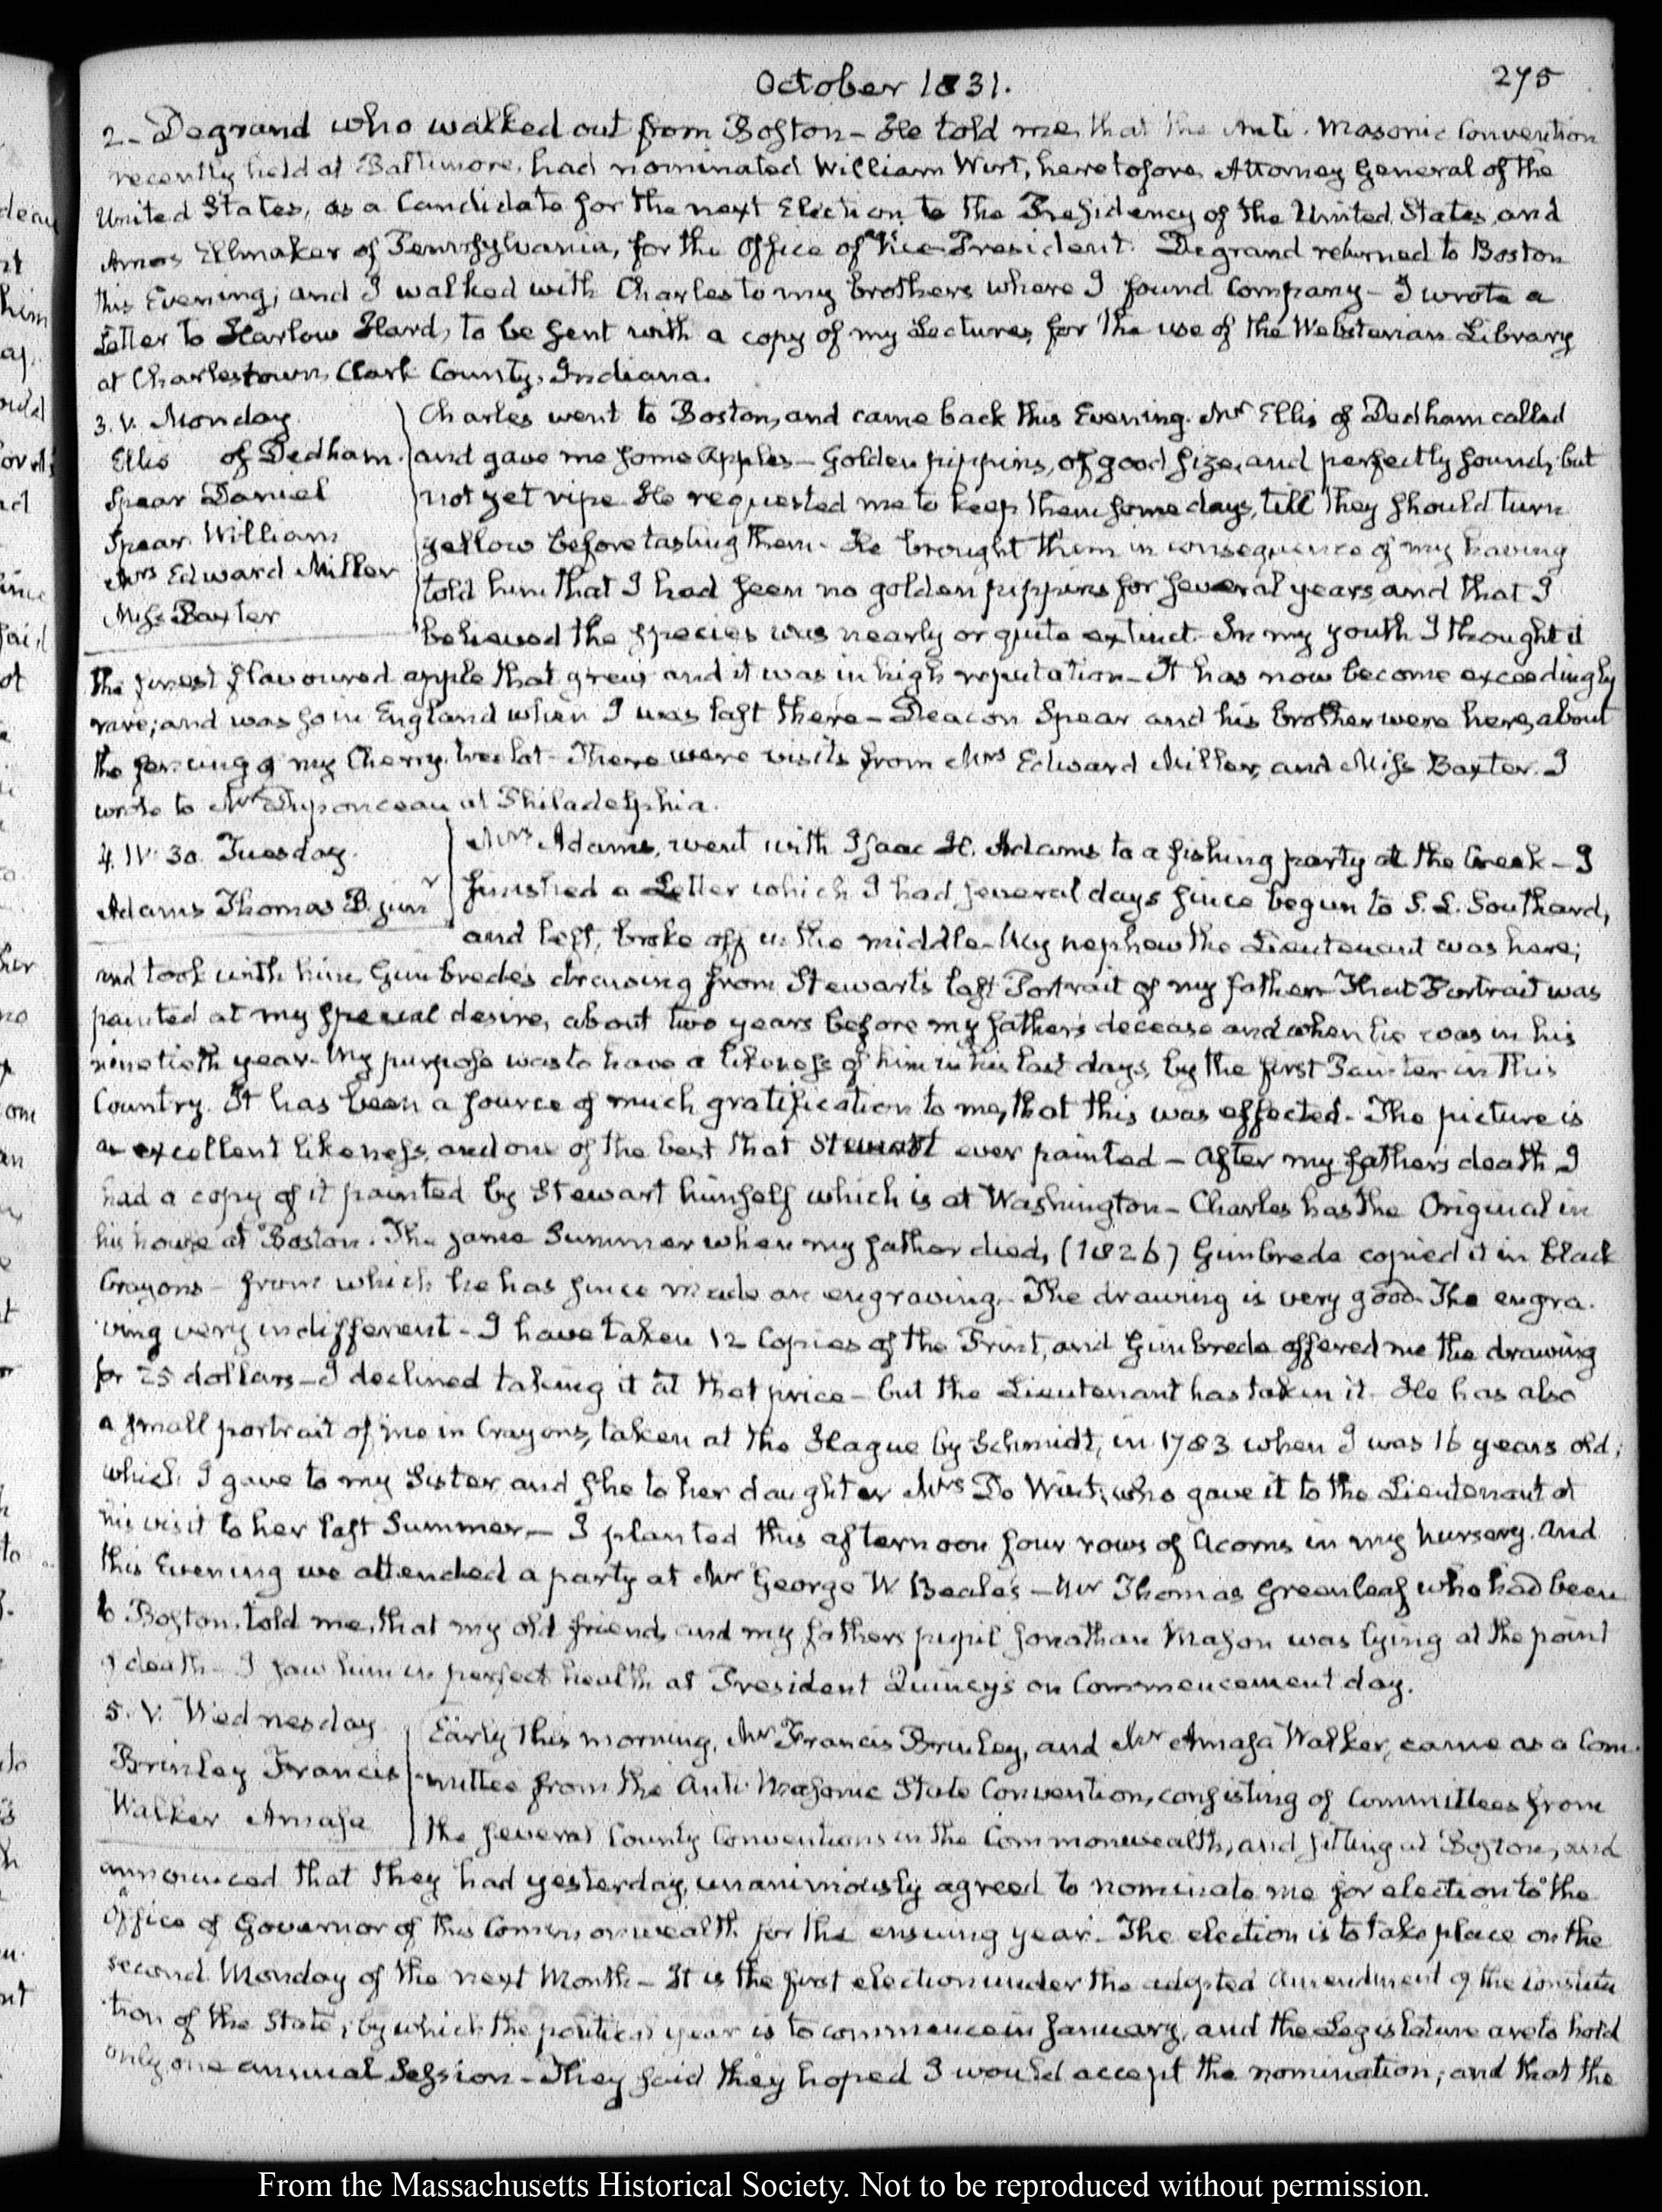 October 1831.
275
2- Degrand who walked out from Boston - He told me, that the Anti-Masonic Convention
recently held at Baltimore, had nominated William Wirt, heretofore Attorney General of the
United States, as a Candidate for the next Election to the Presidency of the United States, and
Amos Ellmaker of Pennsylvania, for the Office of Vice-President. Degrand returned to Boston
this Evening; and I walked with Charles to my brothers where I found Company - I wrote a
Letter to Harlow Hard, to be sent with a copy of my Lectures, for the use of the Websterian Library
at Charlestown, Clark County, Indiana.
3. V. Monday
Ellis of Dedham.
Spear Daniel
Spear William
Mrs Edward Miller
Miss Baxter
Charles went to Boston, and came back this Evening. Mr Ellis of Dedham called
and gave me some Apples - Golden pippins, of good size, and perfectly sound; but
not yet ripe. He requested me to keep them some days, till they should turn
yellow before tasting them - He brought them in consequence of my having
told him that I had seen no golden pippins for several years, and that I
believed the species was nearly or quite extinct. In my youth I thought it
the finest flavoured apple that grew, and it was in high reputation - It has now become exceedingly
rare; and was so in England when I was last there - Deacon Spear and his brother were here, about
the fencing of my Cherry tree lot - There were visits from Mrs Edward Miller, and Miss Baxter. I
wrote to Mr Duponceau at Philadelphia.
4. IV. 30. Tuesday.
Adams Thomas B. junr
Mrs Adams, went with Isaac H. Adams to a fishing party at the Creek - I
finished a Letter which I had several days since begun to S. L. Southard,
and left, broke off in the middle - My nephew the Lieutenant was here;
and took with him, Gimbrede's drawing from Stewart's last Portrait of my father. That Portrait was
painted at my special desire, about two years before my father's decease and when he was in his
ninetieth year - My purpose was to have a likeness of him in his last days, by the first Painter in this
Country. It has been a source of much gratification to me, that this was effected - The picture is
an excellent likeness, and one of the best that Stewart ever painted - After my father's death I
had a copy of it painted by Stewart himself which is at Washington - Charles has the Original in
his house at Boston. The same Summer when my father died, (1826) Gimbrede copied it in black
Crayons - from which he has since made an engraving - The drawing is very good. The engra-
ving very indifferent - I have taken 12 Copies of the Print, and Gimbrede offered me the drawing
for 25 dollars - I declined taking it at that price - but the Lieutenant has taken it. He has also
a small portrait of me in Crayons, taken at the Hague by Schmidt, in 1783 when I was 16 years old;
which I gave to my Sister and she to her daughter Mrs De Wint, who gave it to the Lieutenant at
his visit to her last Summer - I planted this afternoon four rows of Acorns in my nursery. And
this Evening we attended a party at Mr George W Beale's - Mr Thomas Greenleaf who had been
to Boston, told me, that my old friend, and my fathers pupil Jonathan Mason was lying at the point
of death - I saw him in perfect health at President Quincy's on Commencement day.
5. V. Wednesday
Brinley Francis
Walker Amasa
Early this morning, Mr Francis Brinley, and Mr Amasa Walker, came as a Com-
mittee from the Anti-Masonic State Convention, consisting of Committees from
the several County Conventions in the Commonwealth, and sitting at Boston, and
announced that they had yesterday, unanimously agreed to nominate me for election to the
Office of Governor of this Commonwealth for the ensuing year - The election is to take place on the
second Monday of the next Month - It is the first election under the adopted Amendment of the Constitu
tion of the State; by which the political year is to commence in January, and the Legislature are to hold
only one annual Session - They said they hoped I would accept the nomination; and that the
From the Massachusetts Historical Society. Not to be reproduced without permission.